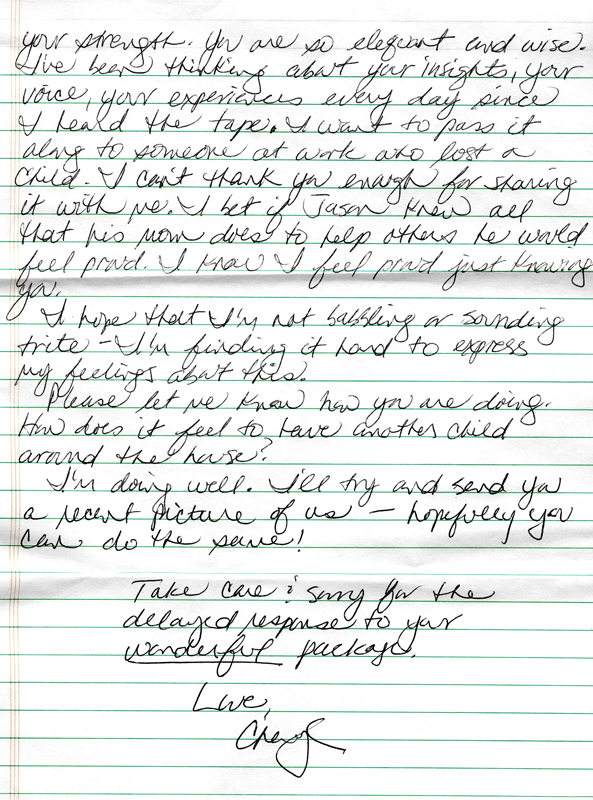 your strength. You are so elegant and wise.
I've been thinking about your insights, your
voice, your experiences every day since
I heard the tape. I want to pass it
along to someone at work who lost a
child. I can't thank you enough for sharing
it with me. I bet if Jason knew all
that his mom does to help others he would
feel proud. I know I feel proud just knowing
you.
I hope that I'm not babbling or sounding
trite - I'm finding it hard to express
my feelings about this.
Please let me know how you are doing.
How does it feel to have another child
around the house?
I'm doing well. I'll try and send you
a recent picture of us - hopefully you
can do the same!
Take care & sorry for the
delayed response to your
wonderful package.
Love,
Cheryl